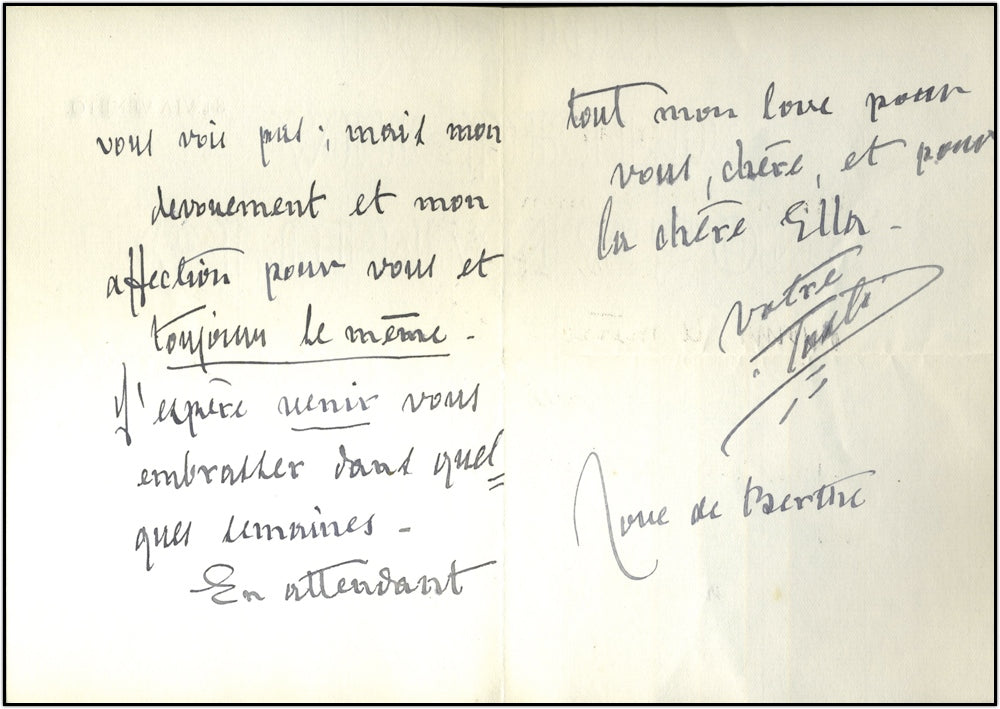 vous vois pas; mais mon
devouement et mon
affection pour vous et
toujours le même -
J'espère venir vous
embrasser dans quel
ques semaines -
En attendant
tout mon love pour
vous, chère, et pour
la chère Ella -
Votre
Tosti
love de Berthe